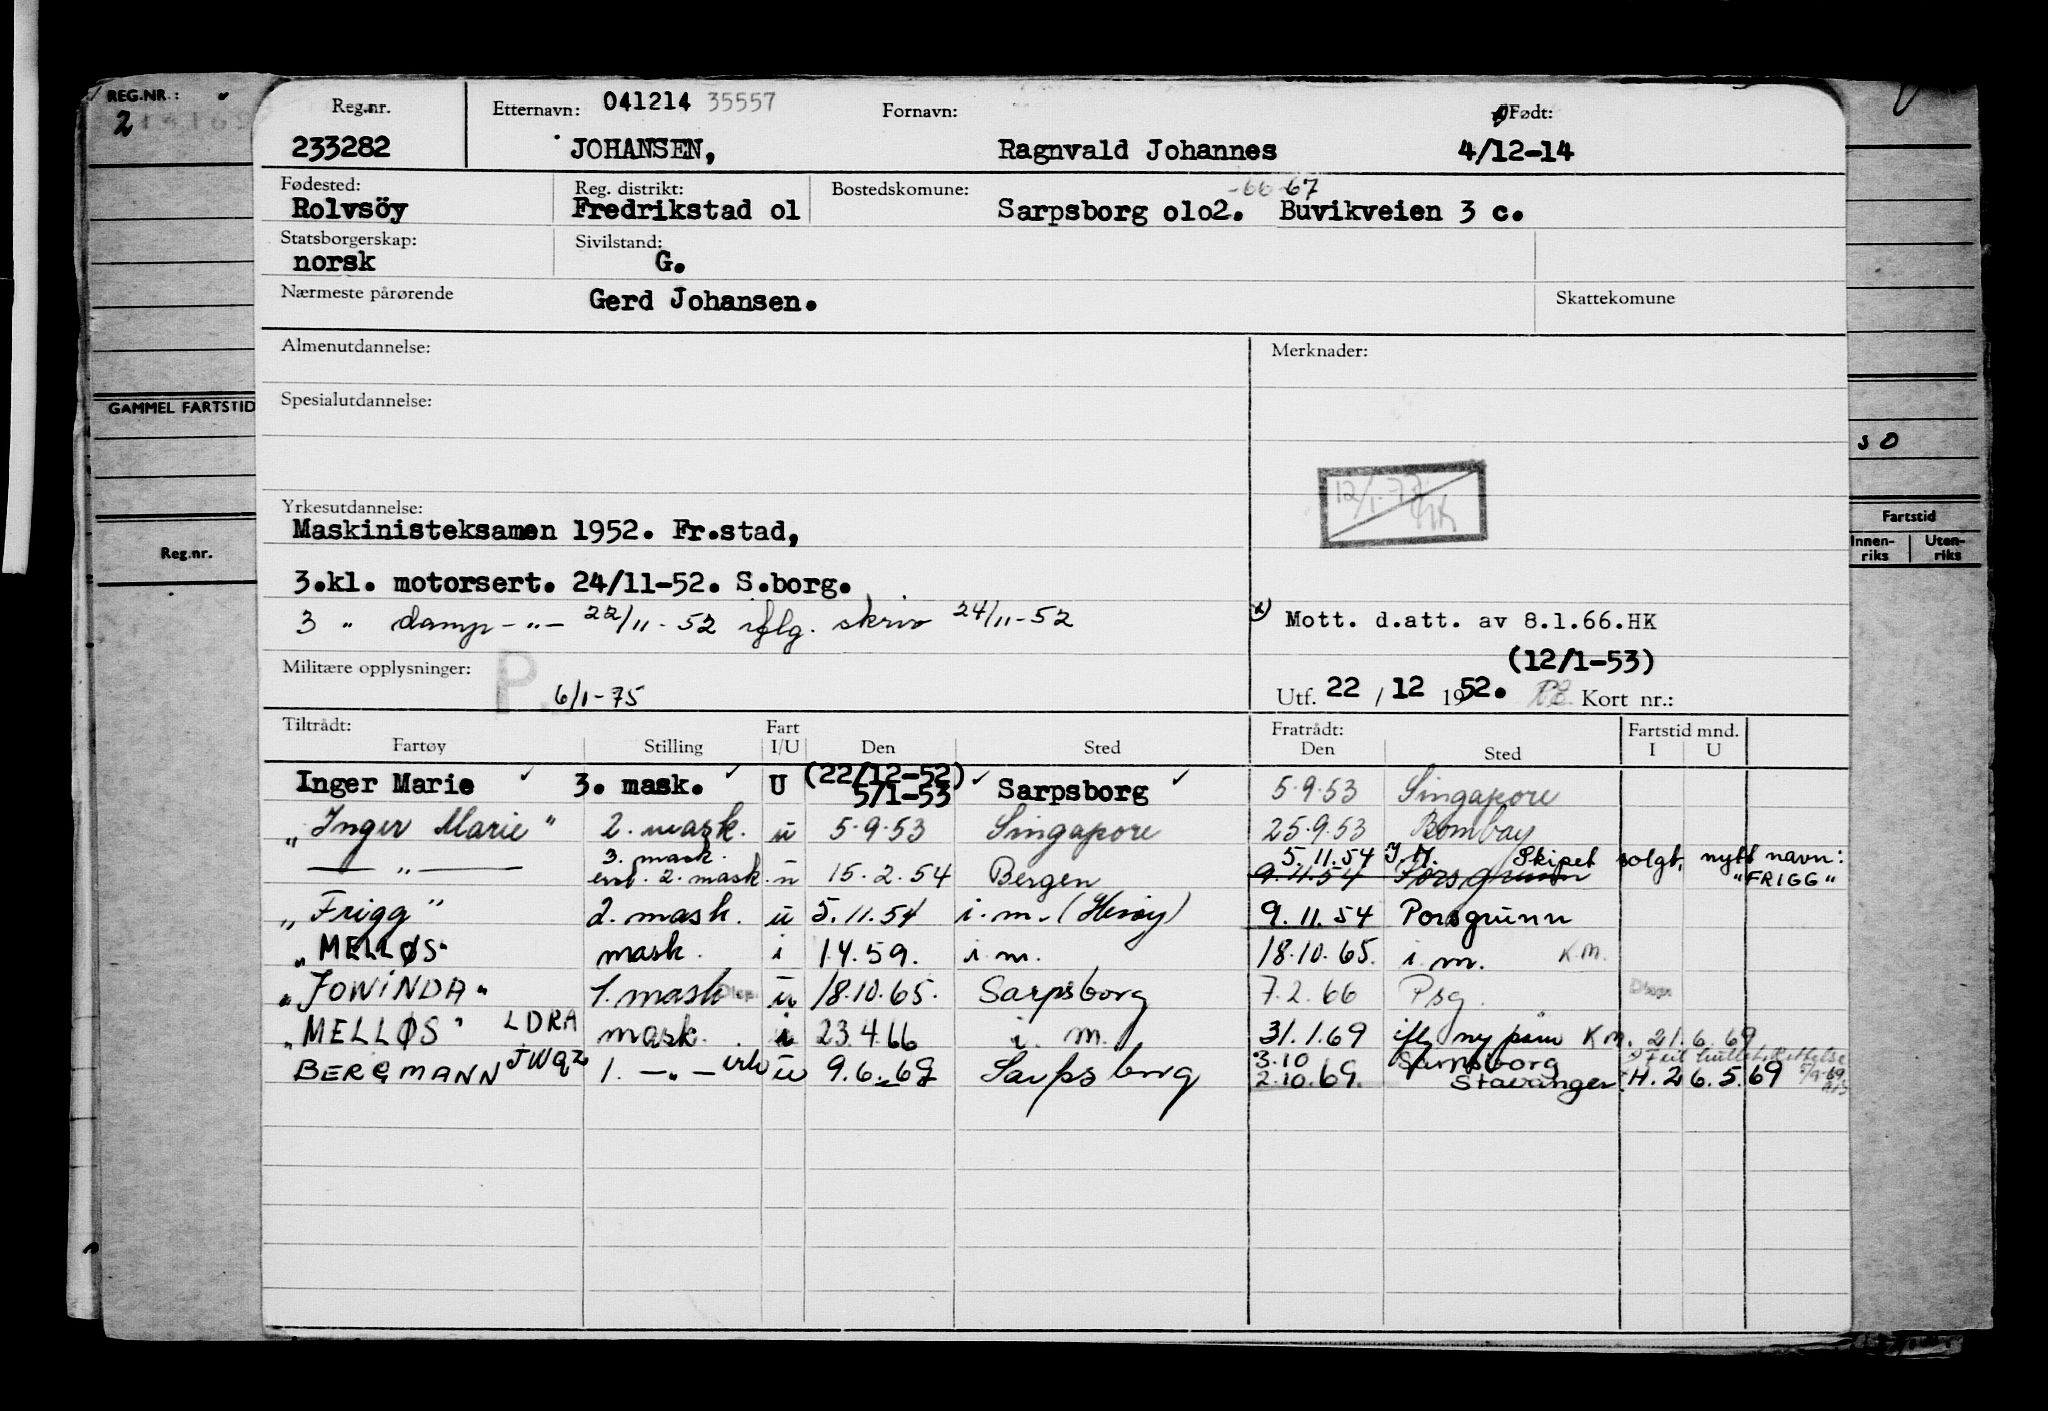 REG.NR.:
2
GAMMEL FARTSTID
Reg.nr.
s O
Fartstid
Innen-riks Uten-riks
Reg.nr. Etternavn: 041214 35557 Fornavn: Født:
233282 JOHANSEN, Ragnvald Johannes 4/12-14
Fødested: Reg. distrikt: Bostedskomune: -66-67
Rolvsöy Fredrikstad 01 Sarpsborg 0102. Buvikveien 3 c.
Statsborgerskap: Sivilstand:
norsk G.
Nærmeste pårørende Gerd Johansen. Skattekomune
Almenutdannelse: Merknader:
Spesialutdannelse:
12/1-77 HK
Yrkesutdannelse:
Maskinisteksamen 1952. Fr.stad,
3.kl. motorsert. 24/11-52. S.borg.
3 " damp - " - 22/11-52 iflg. skriv 24/11-52
x) Mott. d.att. av 8.1.66.HK
(12/1-53)
Militære opplysninger: P. 6/1-75
Utf. 22 / 12 1952. Kort nr.:
Tiltrådt: Fart Fratrådt: Fartstid mnd.
Fartøy Stilling I/U Den Sted Den Sted I U
Inger Marie 3. mask. U (22/12-52) 5/1-53 Sarpsborg 5.9.53 Singapore
"Inger Marie" 2. mask. u 5.9.53 Singapore 25.9.53 Bombay
— " — 3. mask. enst. 2. mask. u 15.2.54 Bergen 5.11.54 I.M. Skipet solgt, nytt navn: "FRIGG"
9.11.54 Porsgrunn
"Frigg" 2. mask. u 5.11.54 i.m. (Herøy) 9.11.54 Porsgrunn
"MELLØS" mask. i 1.4.59. i.m. 18.10.65. i.m. K.M.
"JOWINDA" 1. mask Disp. u 18.10.65. Sarpsborg 7.2.66 Psg. Disp.
"MELLØS" LDRA mask. i 23.4.66 i.m. 31.1.69 ifl ny påm K.M. 21.6.69
BERGMANN JWQZ 1. — " — u 9.6.69 Sarpsborg 3.10 Sarpsborg
2.10.69. Stavanger H. 26.5.69